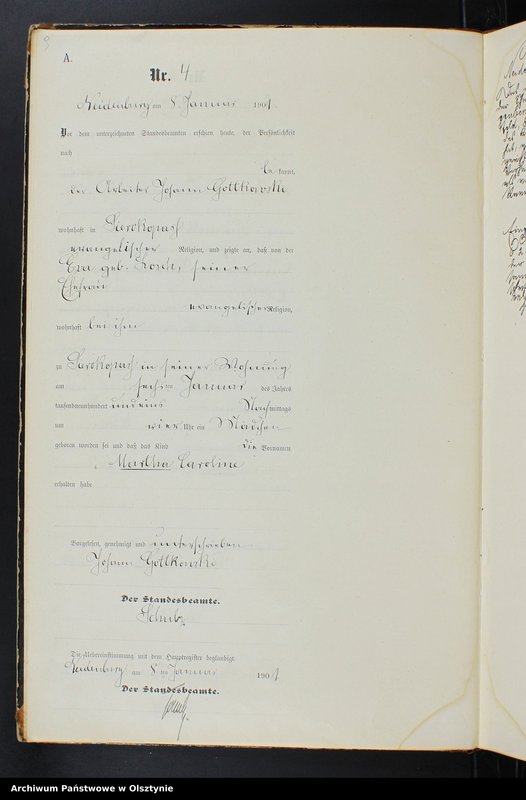 A.
Nr. 4
Neidenburg am 8. Januar 1901.
Vor dem unterzeichneten Standesbeamten erschien heute, der Persönlichkeit
nach
be kannt,
der Arbeiter Johann Gottkowski
wohnhaft in Sarokopaß
evangelischer Religion, und zeigte an, daß von der
Eva geb. seiner
Ehefrau
evangelischer Religion,
wohnhaft bei ihm
zu Sarokopaß in seiner Wohnung
am sechs ten Januar des Jahres
tausendneunhundert und eins Nach mittags
um vier Uhr ein Mädchen
geboren worden sei und daß das Kind die Vornamen
Martha Caroline
erhalten habe
Vorgelesen, genehmigt und unterschrieben
Johann Gottkowski
Der Standesbeamte.
Schulz
Die Uebereinstimmung mit dem Hauptregister beglaubigt
Neidenburg am 8 ten Januar 1901
Der Standesbeamte.
Archiwum Państwowe w Olsztynie